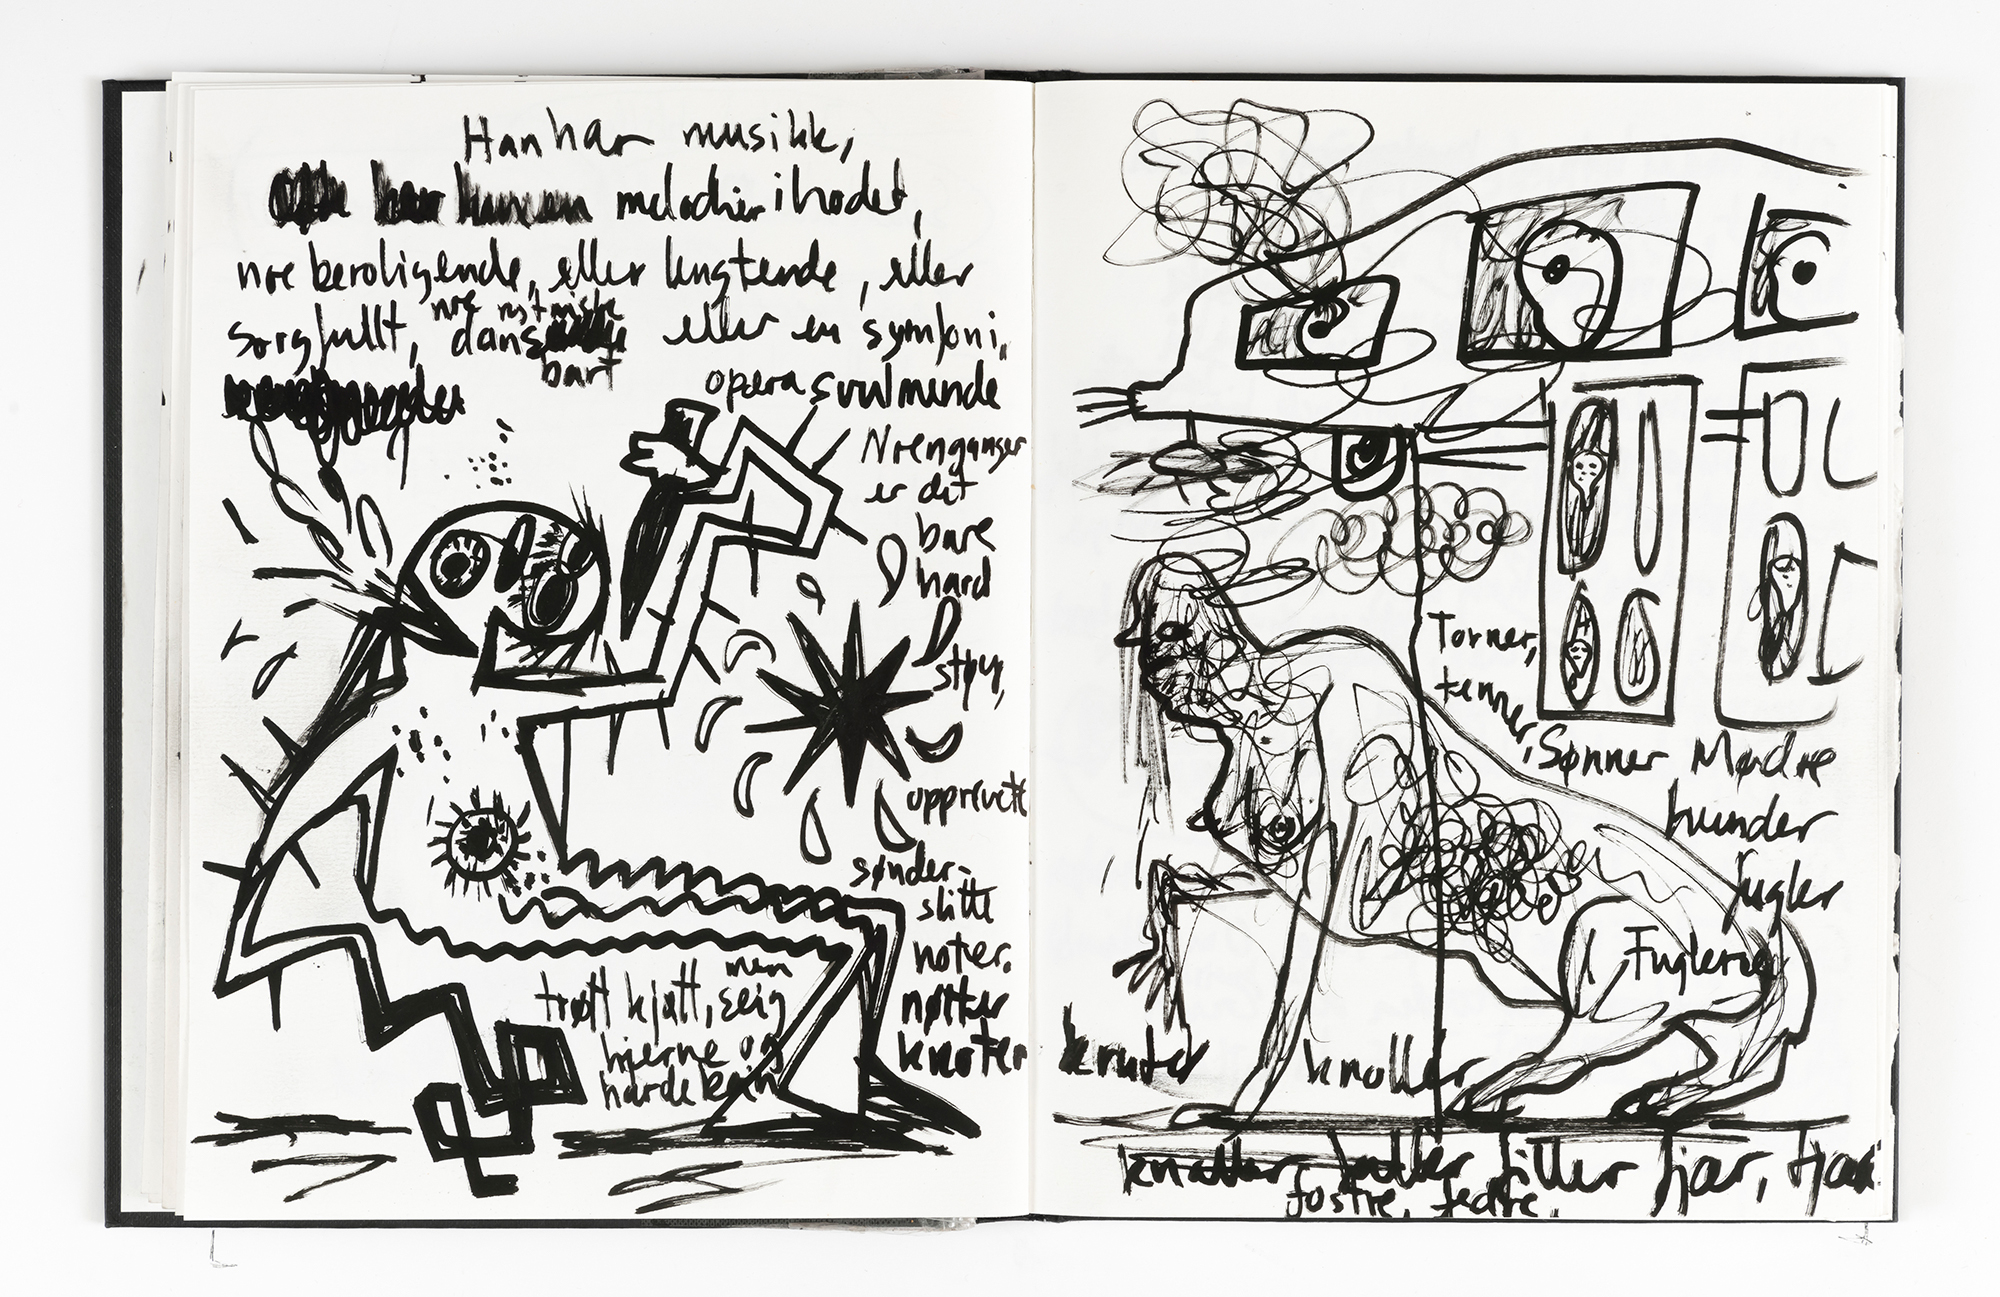 Han har musikk,
melodier i hodet,
noe beroligende, eller lengtende, eller
noe rytmiske
sorgfullt, dans eller en symfoni,
bart
opera svulmende
Noen ganger
er det
bare
hard
støy,
opprevett
sønder-
slitte
noter,
nøtter
knoter
men
trøtt kjøtt, seig
hjerne og
harde bein
Torner,
tenner,
Sønner Mødre
hunder
fugler
Fuglene
knuter
knoller
knoller, filler fjær, fjær
fostre, fedre,